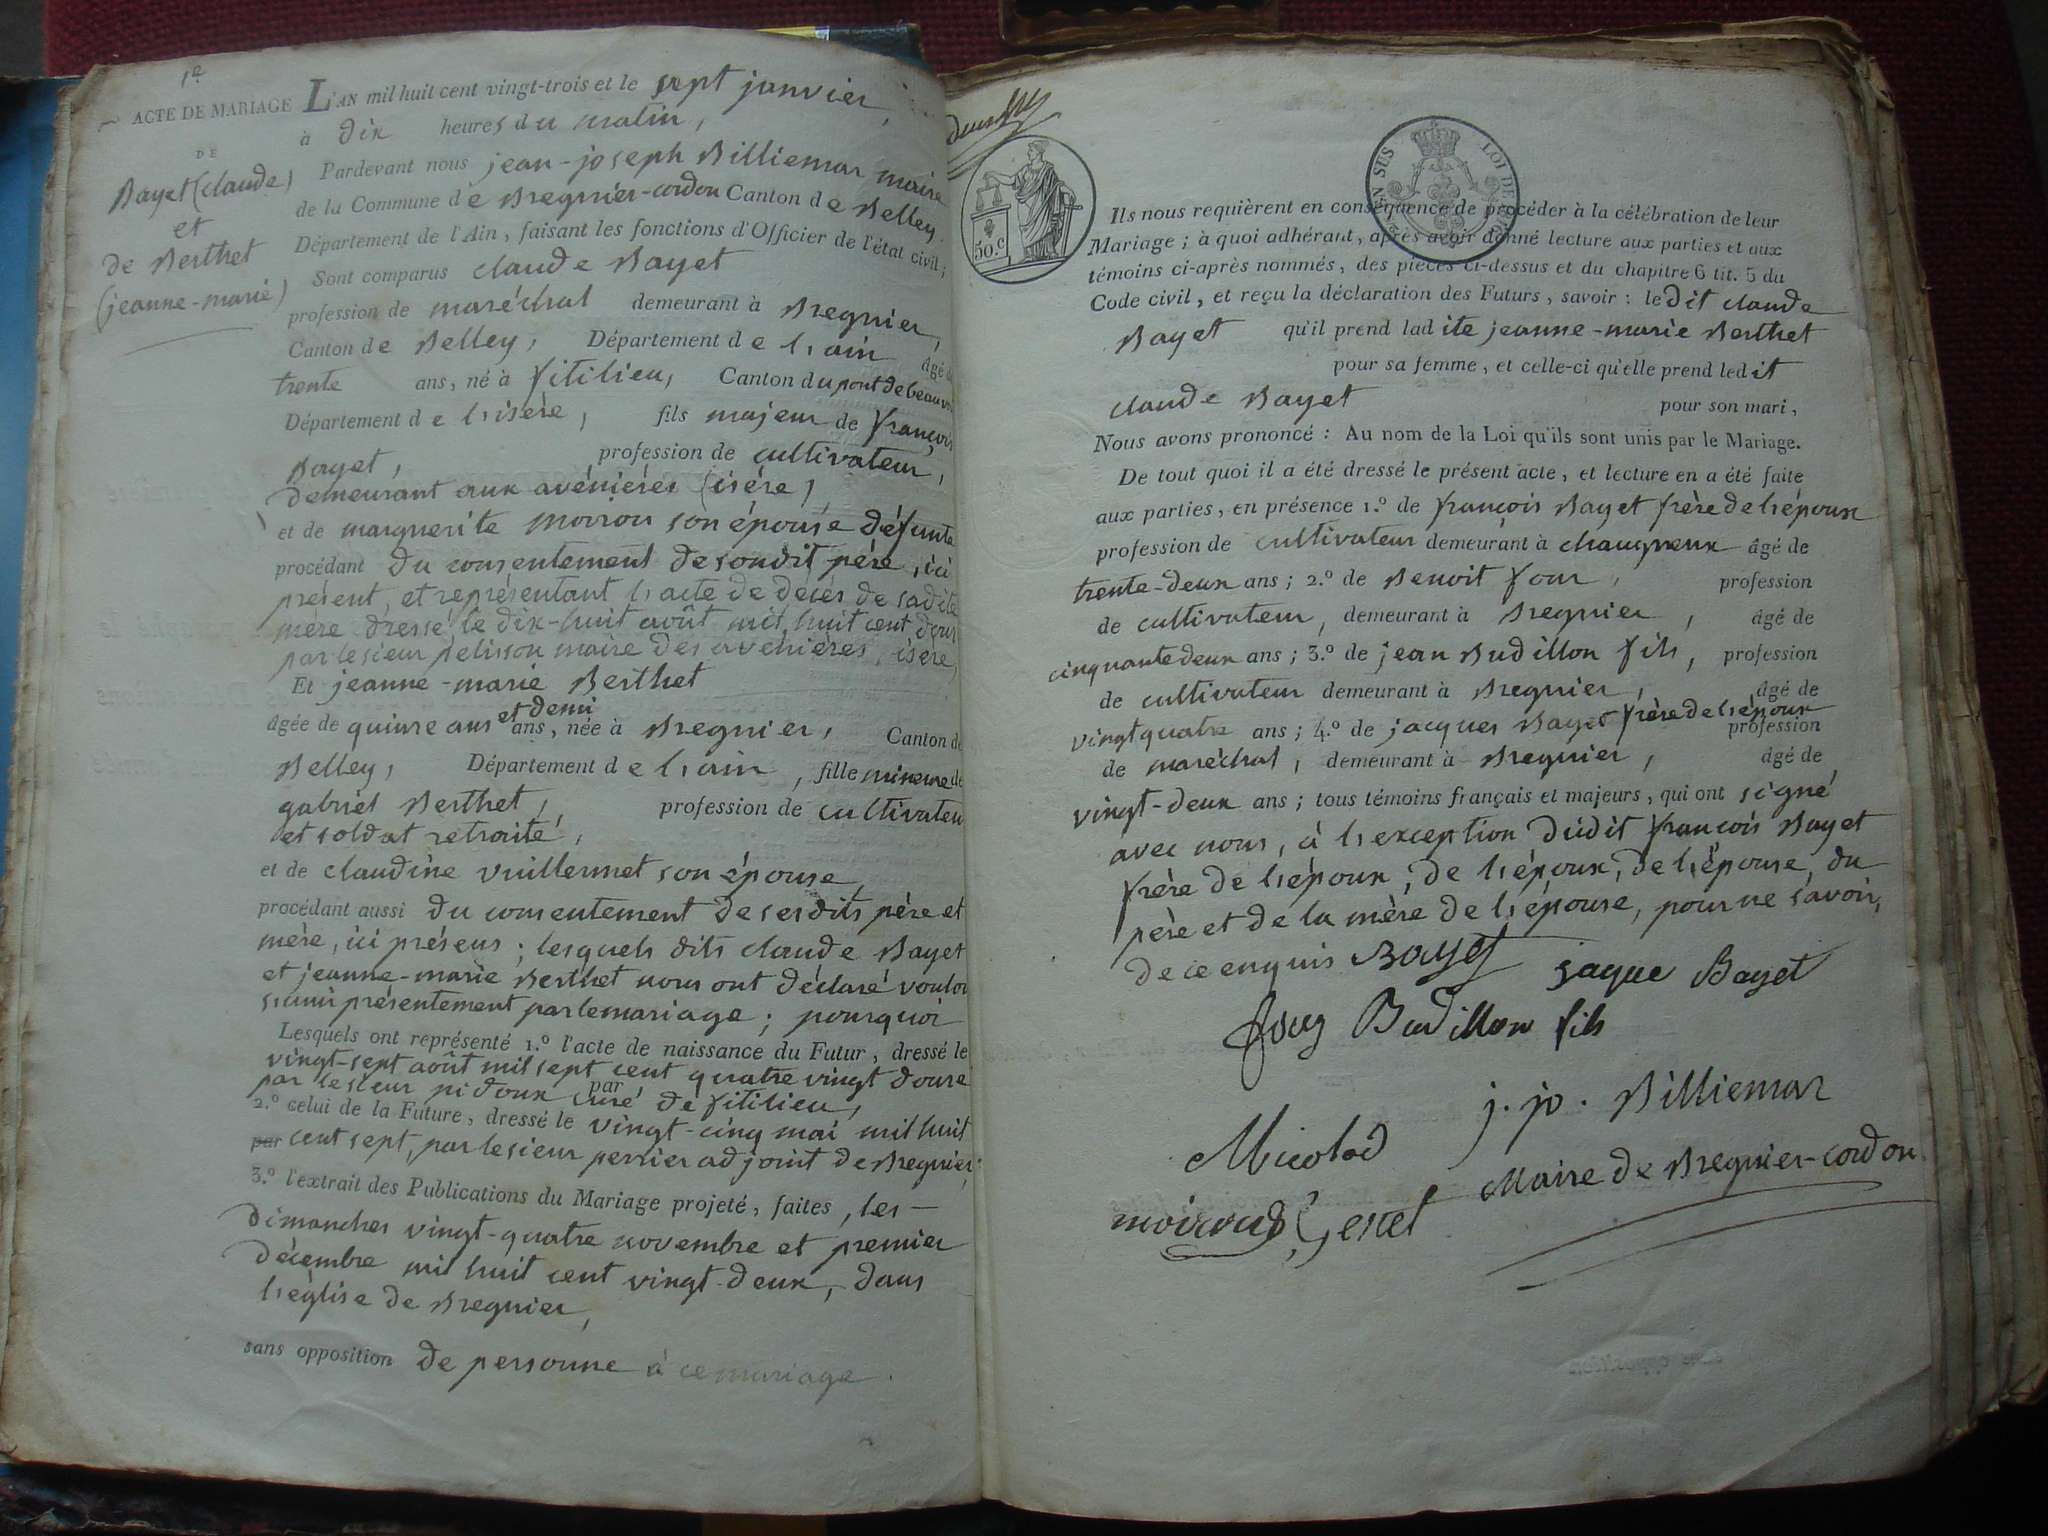 1e
ACTE DE MARIAGE
DE
Bayet (claude)
et
de Berthet
(jeanne-marie)
L'AN mil huit cent vingt-trois et le sept janvier,
à dix heures du matin,
Pardevant nous jean-joseph Billiemar maire
de la Commune de Bregnier-cordon Canton de Belley
Département de l'Ain, faisant les fonctions d'Officier de l'état civil;
Sont comparus claude Bayet
profession de maréchal demeurant à Bregnier,
Canton de Belley, Département de l'ain âgé de
trente ans, né à fitilieu, Canton du pont de beauvoi
Département de l'isère, fils majeur de françois
Bayet, profession de cultivateur,
demeurant aux avénières (isére)
et de marguerite moiron son épouse défunte
procédant du consentement de sondit père, ici
présent, et représentant l'acte de décès de sadite
mère dressé le dix-huit août mil huit cent douze
par le sieur pelisson maire des avenières, isère,
Et jeanne-marie Berthet
âgée de quinze ans et demi ans, née à Bregnier, Canton de
Belley, Département de l'ain, fille mineure de
gabriel Berthet, profession de cultivateu
et soldat retraité,
et de claudine vuillermet son épouse,
procédant aussi du consentement de sesdits père et
mère, ici présens; lesquels dits claude Bayet
et jeanne-marie Berthet nous ont déclaré vouloi
s'unir présentement par le mariage; pourquoi
Lesquels ont représenté 1.º l'acte de naissance du Futur, dressé le
vingt-sept août mil sept cent quatre vingt douze
par le sieur pidoux curé de fitilieu,
2.º celui de la Future, dressé le vingt-cinq mai mil huit
par cent sept, par le sieur perrier adjoint de Bregnier;
3.º l'extrait des Publications du Mariage projeté, faites, les
dimanches vingt-quatre novembre et premier
décembre mil huit cent vingt-deux, dans
l'église de Bregnier,
sans opposition de personne à ce mariage.
50.c
BIEN SUS LOI DE
Ils nous requièrent en conséquence de procéder à la célébration de leur
Mariage; à quoi adhérant, après avoir donné lecture aux parties et aux
témoins ci-après nommés, des pièces ci-dessus et du chapitre 6 tit. 5 du
Code civil, et reçu la déclaration des Futurs, savoir: le dit claude
Bayet qu'il prend ladite jeanne-marie Berthet
pour sa femme, et celle-ci qu'elle prend ledit
claude Bayet pour son mari,
Nous avons prononcé: Au nom de la Loi qu'ils sont unis par le Mariage.
De tout quoi il a été dressé le présent acte, et lecture en a été faite
aux parties, en présence 1.º de françois Bayet frère de l'époux
profession de cultivateur demeurant à chaugneux âgé de
trente-deux ans; 2.º de Benoit four, profession
de cultivateur, demeurant à Bregnier, âgé de
cinquante deux ans; 3.º de jean Budillon fils, profession
de cultivateur demeurant à Bregnier, âgé de
vingt quatre ans; 4.º de jacques Bayet frère de l'époux profession
de maréchal, demeurant à Bregnier, âgé de
vingt-deux ans; tous témoins français et majeurs, qui ont signé
avec nous, à l'exception dudit françois Bayet
frère de l'époux, de l'époux, de l'épouse, du
père et de la mère de l'épouse, pour ne savoir,
de ce enquis Bayet jaque Bayet
Budillon fils
j. jo. Billiemar
Micolod
Maire de Bregnier-cordon